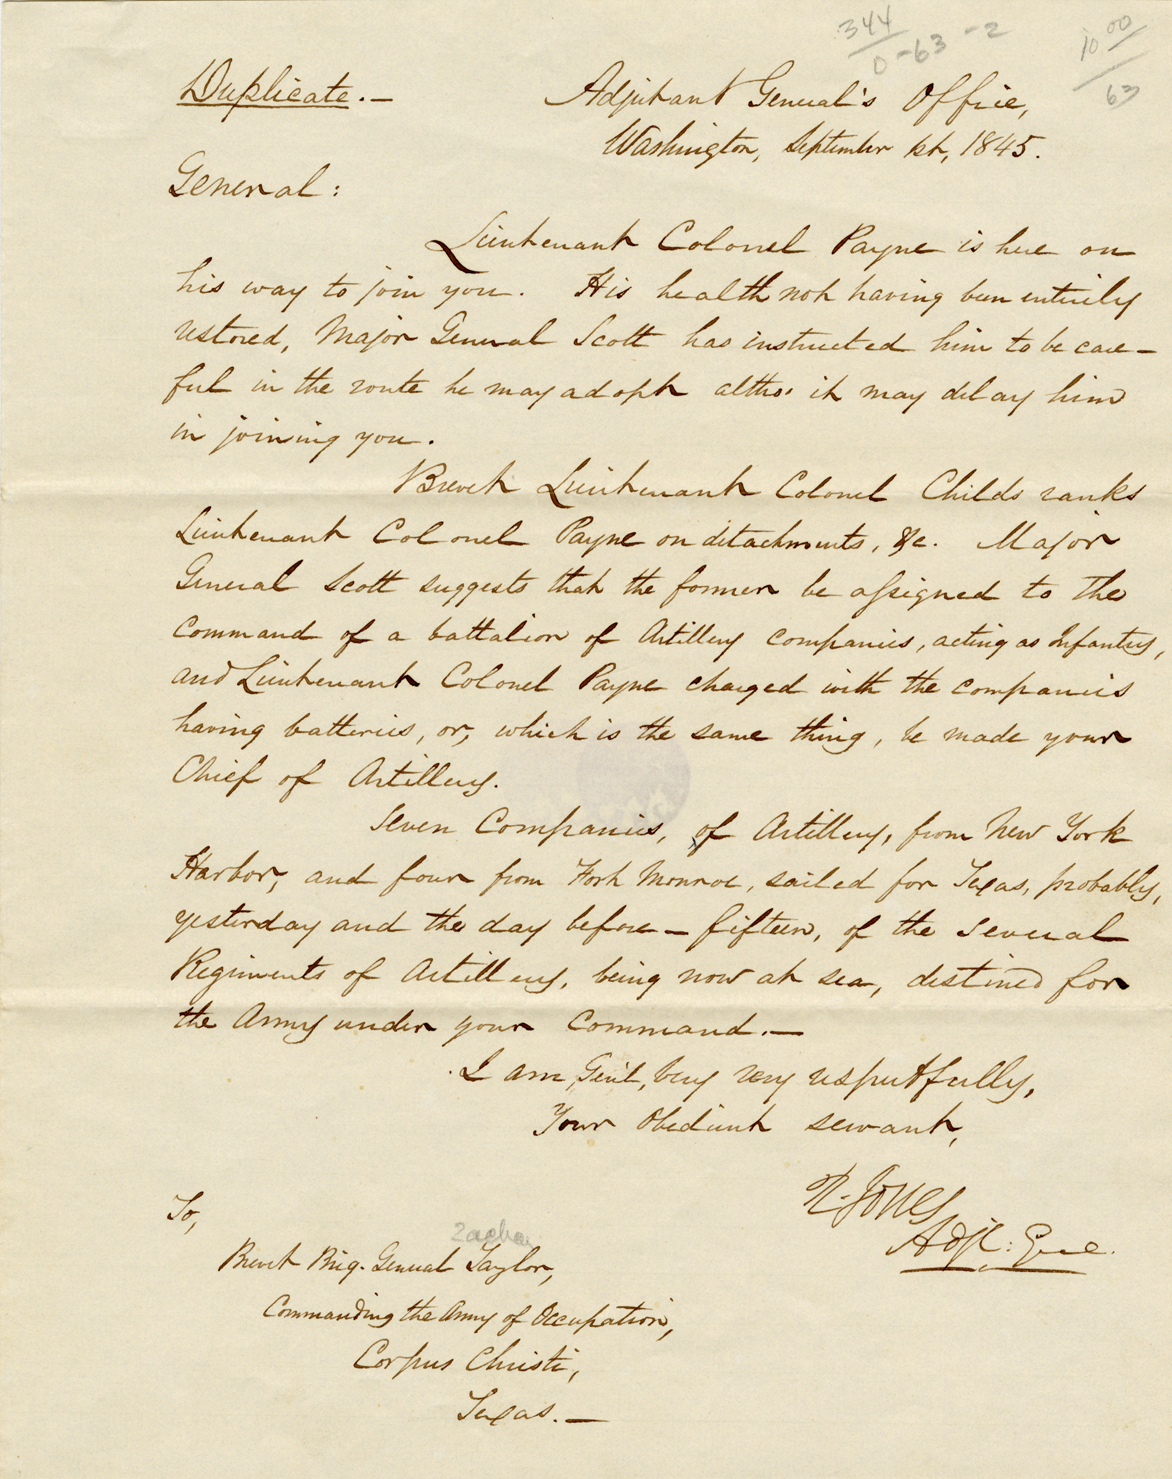 344
0-63-2
10 00
63
Duplicate.—
Adjutant General's Office,
Washington, September 1st, 1845.
General:
Lieutenant Colonel Payne is here on
his way to join you. His health not having been entirely
restored, Major General Scott has instructed him to be care-
ful in the route he may adopt altho' it may delay him
in joining you.
Brevet Lieutenant Colonel Childs ranks
Lieutenant Colonel Payne on detachments, &c. Major
General Scott suggests that the former be assigned to the
command of a battalion of Artillery companies, acting as Infantry,
and Lieutenant Colonel Payne charged with the companies
having batteries, or, which is the same thing, be made your
Chief of Artillery.
Seven Companies, of Artillery, from New York
Harbor, and four from Fort Monroe, sailed for Texas, probably,
yesterday and the day before — fifteen, of the several
Regiments of Artillery, being now at sea, destined for
the Army under your command.—
I am, Gen'l, very respectfully,
Your Obedient servant,
R. Jones
Adjt: Genl.
To,
Zachary
Brevet Brig. General Taylor,
Commanding the Army of Occupation,
Corpus Christi,
Texas.—